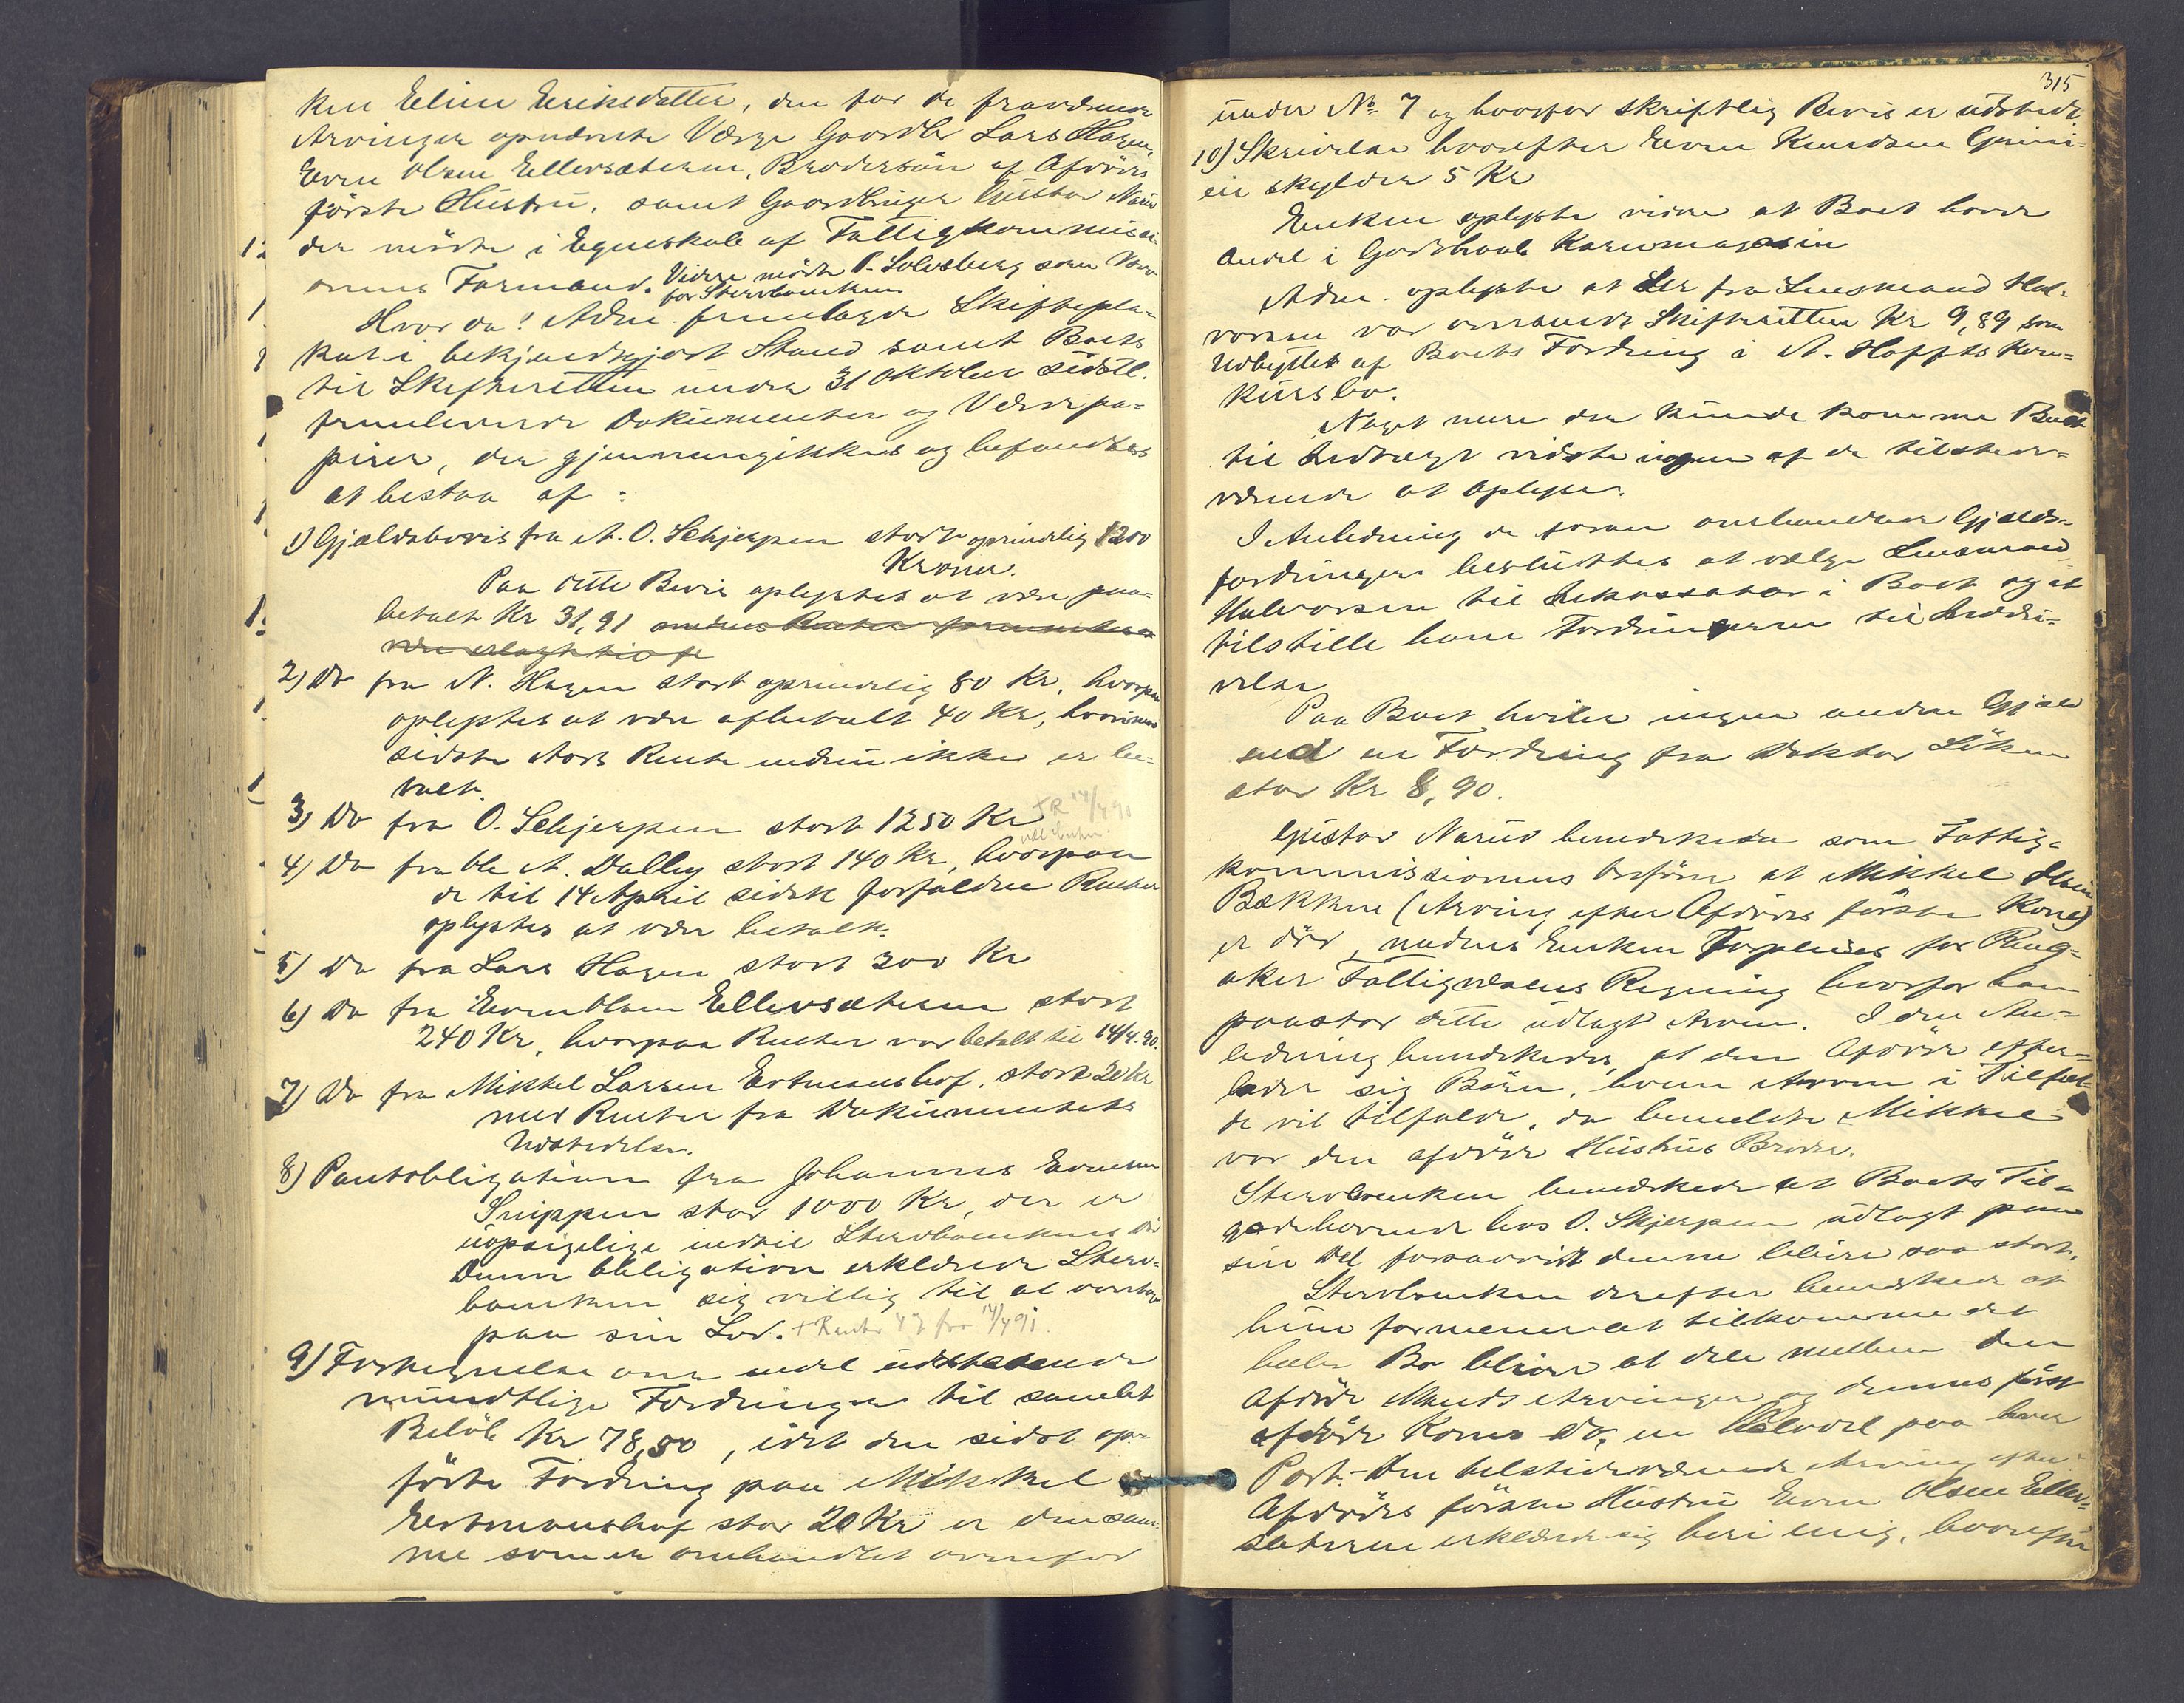 ken Eline Eriksdatter, den for de fraværende
Arvinger opnævnte Værge Gaardbr Lars Hagen,
Even Olsen Ellevsæteren, Brodersøn af Afdødes
første Hustru, samt Gaardbruger Gustav Narud
der mødte i Egenskab af Fattigkommissi-
onens Formand. Videre mødte P. Solosberg som Værge
for Stervboenken
Hvor da! Adm. fremlagde Skiftepla-
kat i bekjendtgjort Stand samt Boets
til Skifteretten under 31 Oktober sidstl.
fremleverede Dokumenter og Værdipa-
pirer, der gjennemgikkes og befandtes
at bestaa af:
1) Gjældsbevis fra A. O. Schjerpen stort oprindelig 1200
Kroner.
Paa dette Bevis oplystes at være paa-
betalt Kr 31,91
2) Do fra N. Hagen stort oprindelig 80 Kr, hvorpaa
oplystes at være afbetalt 40 Kr, hvorimod
sidste Aars Rente endnu ikke er be-
talt.
3) Do fra O. Schjerpen stort 1250 Kr
4) Do fra Ole A. Dalby stort 140 Kr, hvorpaa
de til 14 April sidste forfaldne Renter
oplystes at være betalt.
5) Do fra Lars Hagen stort 300 Kr
6) Do fra Even Olsen Ellevsæteren stort
240 Kr, hvorpaa Renter var betalt til 14/4 90.
7) Do fra Mikkel Larsen Ertmanshof, stort 20 Kr
med Renter fra Dokumentets
Udstedelse.
8) Pantobligation fra Johannes Evensen
Snippen stor 1000 Kr, der er
uopsigelige indtil Stervboenkens Død
Denne Obligation erklærede Sterv-
boenken sig villig til at overtage
paa sin Lod. + Renter fra 14/4 91
9) Fortegnelse over endel udestaaende
mundtlige Fordringer til samlet
Beløb Kr 78,50, idet den sidst op-
førte Fordring paa Mikkel
Ertmanshof stor 20 Kr er den sam-
me som er omhandlet ovenfor
315
under No 7 og hvorfor skriftlig Bevis er udstedt.
10) Skrivelse hvorefter Even Knudsen Grini-
eie skylder 5 Kr
Enken oplyste videre at Boet havde
Andel i Godthaab Kornmagasin
Adm. oplyste at der fra Lensmand Hal-
vorsen var oversendt Skifteretten Kr 9,89 som
Udbyttet af Boets Fordring i A. Hoffts Kon-
kursbo.
Noget mere der kunde komme Boet
til Indtægt vidste ingen af de tilstede-
værende at oplyse.
I Anledning de foran omhandlede Gjælds-
fordringer besluttedes at vælge Lensmand
Halvorsen til Inkassator i Boet og at
tilstille ham Fordringerne til Inddri-
velse
Paa Boet hviler ingen anden Gjæld
end en Fordring fra Doktor Löken
stor Kr 8,90.
Gustav Narud bemærkede som Fattig-
kommissionens Ordfører at Mikkel Olsen
Bækken (Arving efter Afdødes første Kone)
er død, medens Enken forpleies for Ring-
aker Fattigvæsens Regning hvorfor han
paastod dette udlagt Arven. I den An-
ledning bemærkedes, at den Afdøde efter-
lader sig Børn, hvem Arven i Tilfæl-
de vil tilfalde, da bemeldte Mikkel
var den afdøde Hustrus Broder.
Stervboenken bemærkede at Boets Til-
godehavende hos O. Skjerpen udlagt paa
sin Del forsaavidt denne bliver saa stor.
Stervboenken derefter bemærkede at
hun formenerat tilkomme det
hele Bo bliver at dele mellem den
afdøde Mands Arvinger og dennes først
afdøde Kones Do, en Halvdel paa hver
Part. Den tilstedeværende Arving efter
Afdødes første Hustru Even Olsen Ellev-
sæteren erklærede sig heri enig, hvorefter